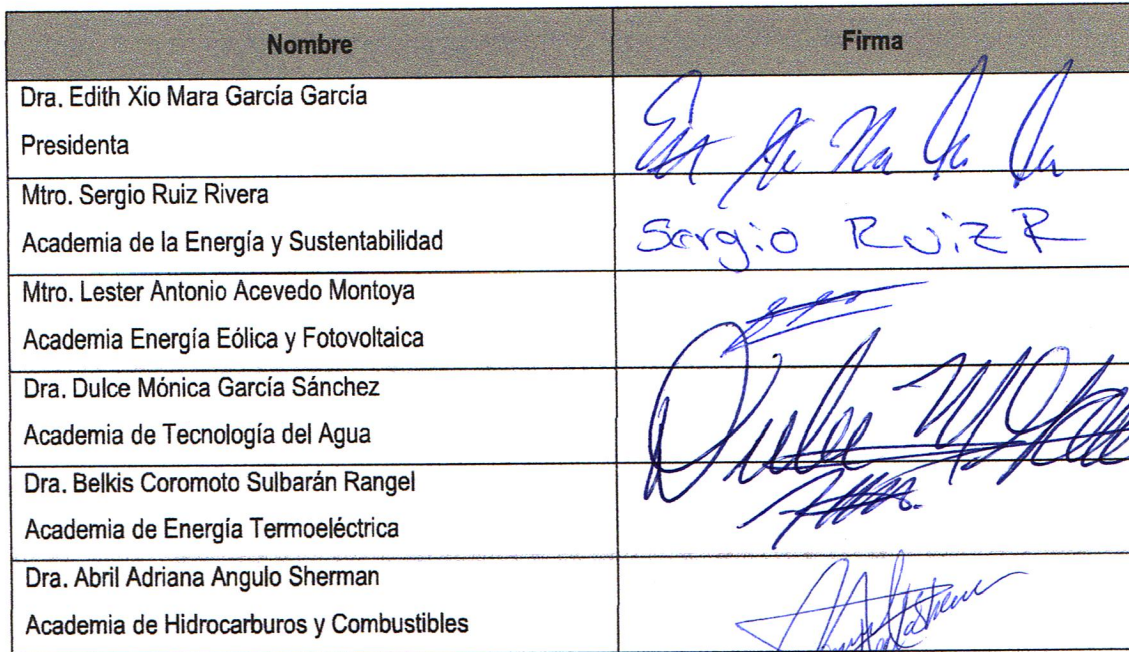 Nombre Firma
Dra. Edith Xio Mara García García
Presidenta
Mtro. Sergio Ruiz Rivera
Academia de la Energía y Sustentabilidad
Sergio Ruiz R
Mtro. Lester Antonio Acevedo Montoya
Academia Energía Eólica y Fotovoltaica
Dra. Dulce Mónica García Sánchez
Academia de Tecnología del Agua
Dulce M
Dra. Belkis Coromoto Sulbarán Rangel
Academia de Energía Termoeléctrica
Dra. Abril Adriana Angulo Sherman
Academia de Hidrocarburos y Combustibles